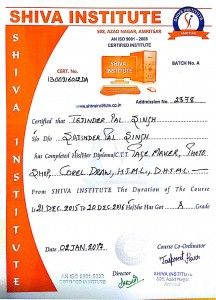 SHIVA INSTITUTE
508, AZAD NAGAR, AMRITSAR
AN ISO 9001 : 2008
CERTIFIED INSTITUTE
SHIVA INSTITUTE
CERT. No.
BATCH No. A
www.shivainstitute.co.in
Addmission No. 2578
Certified that TEJINDER PAL SINGH
S/o D/o SATINDER PAL SINGH
has Completed His/Her Diploma/CTT PAGE MAKER, PHOTO
SHOP, COREL DRAW, H.T.M.L, D.H.T.M.L
From SHIVA INSTITUTE The Duration of the Course
is 21 DEC 2015 To 20 DEC 2016 He/She Has Got A Grade
Date 02 JAN. 2017
Course Co-Ordinator
Director
AN ISO 9001:2008
CERTIFIED INSTITUTE
SHIVA INSTITUTE
508, Azad Nagar